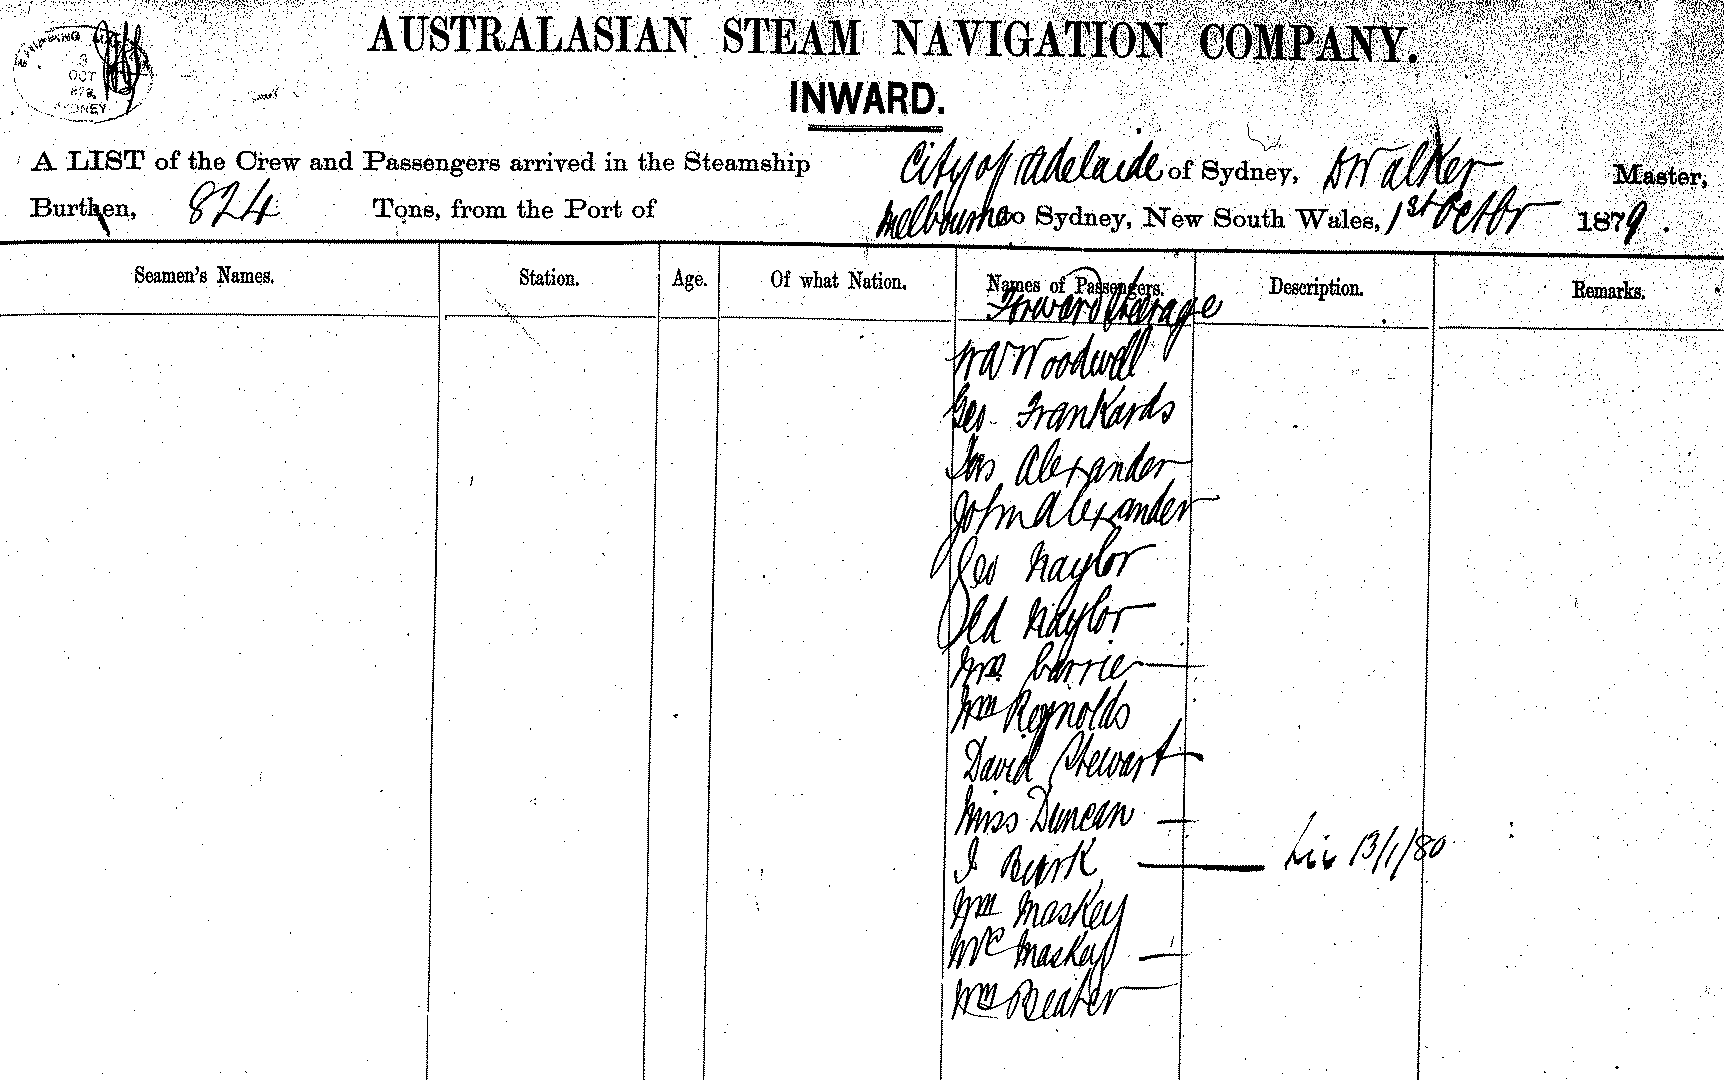 3
OCT
SYDNEY
AUSTRALASIAN STEAM NAVIGATION COMPANY.
INWARD.
A LIST of the Crew and Passengers arrived in the Steamship City of Adelaide of Sydney, D Walker Master,
Burthen, 824 Tons, from the Port of Melbourne to Sydney, New South Wales, 1st Octbr 1879.
Seamen's Names. Station. Age. Of what Nation. Names of Passengers. Description. Remarks.
Forward Steerage
W Woodwell
Geo Frankards
Jas Alexander
John Alexander
Geo Naylor
Ed Naylor
Mrs Currier
Wm Reynolds
David Stewart
Miss Duncan
J 13/1/80
Wm Maskey
Maskey
Wm Beater